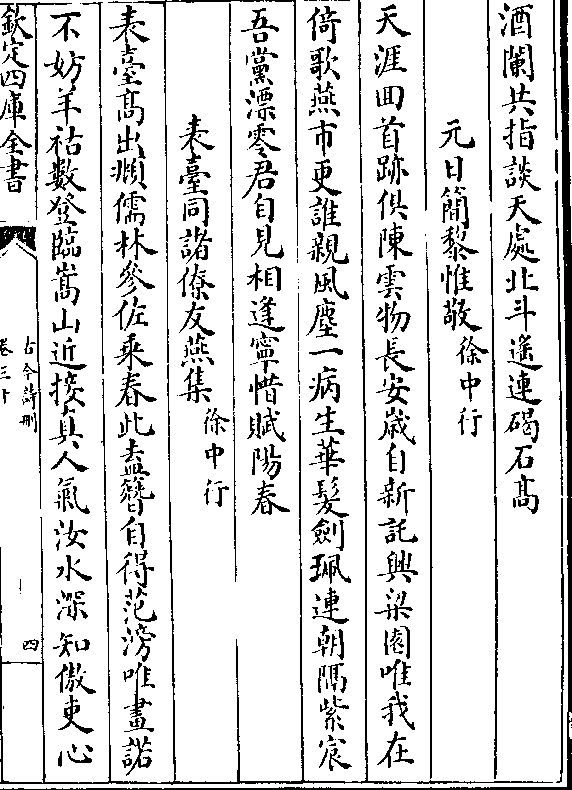 酒闌共指談天處北斗遙連碣石髙
元日簡黎惟敬徐中行
天涯回首跡俱陳雲物長安嵗自新託興梁園唯我在
倚歌燕市更誰親風塵一病生華髮劍珮連朝隔紫宸
吾黨漂零君自見相逢寧惜賦陽春
表臺同諸僚友燕集徐中行
表臺髙出瀕儒林參佐乗春此盍簪自得范滂唯畫諾
不妨羊祜數登臨嵩山近接真人氣汝水深知傲吏心
欽定四庫全書
古今詩刪
卷三十
四